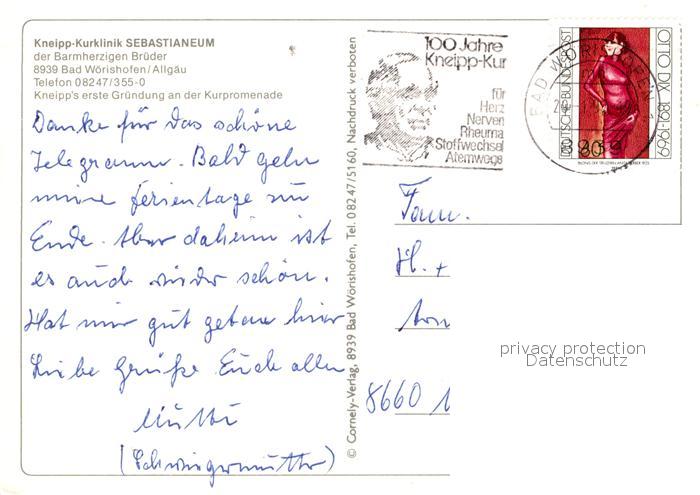 Kneipp-Kurklinik SEBASTIANEUM
der Barmherzigen Brüder
8939 Bad Wörishofen/Allgäu
Telefon 08247/355-0
Kneipp's erste Gründung an der Kurpromenade
Danke für das schöne
Telegramm. Bald gehn
meine Ferientage zu
Ende. Aber daheim ist
es auch wieder schön.
Hat mir gut getan hier
Liebe Grüße Euch allen
Mutti
(Schwiegermutter)
© Cornely-Verlag, 8939 Bad Wörishofen, Tel. 08247/5160, Nachdruck verboten
100 Jahre
Kneipp-Kur
für
Herz
Nerven
Rheuma
Stoffwechsel
Atemwege
BAD WÖRISHOFEN 1
DEUTSCHE BUNDESPOST
80
OTTO DIX 1891-1969
Fam.
H. +
8660
privacy protection
Datenschutz